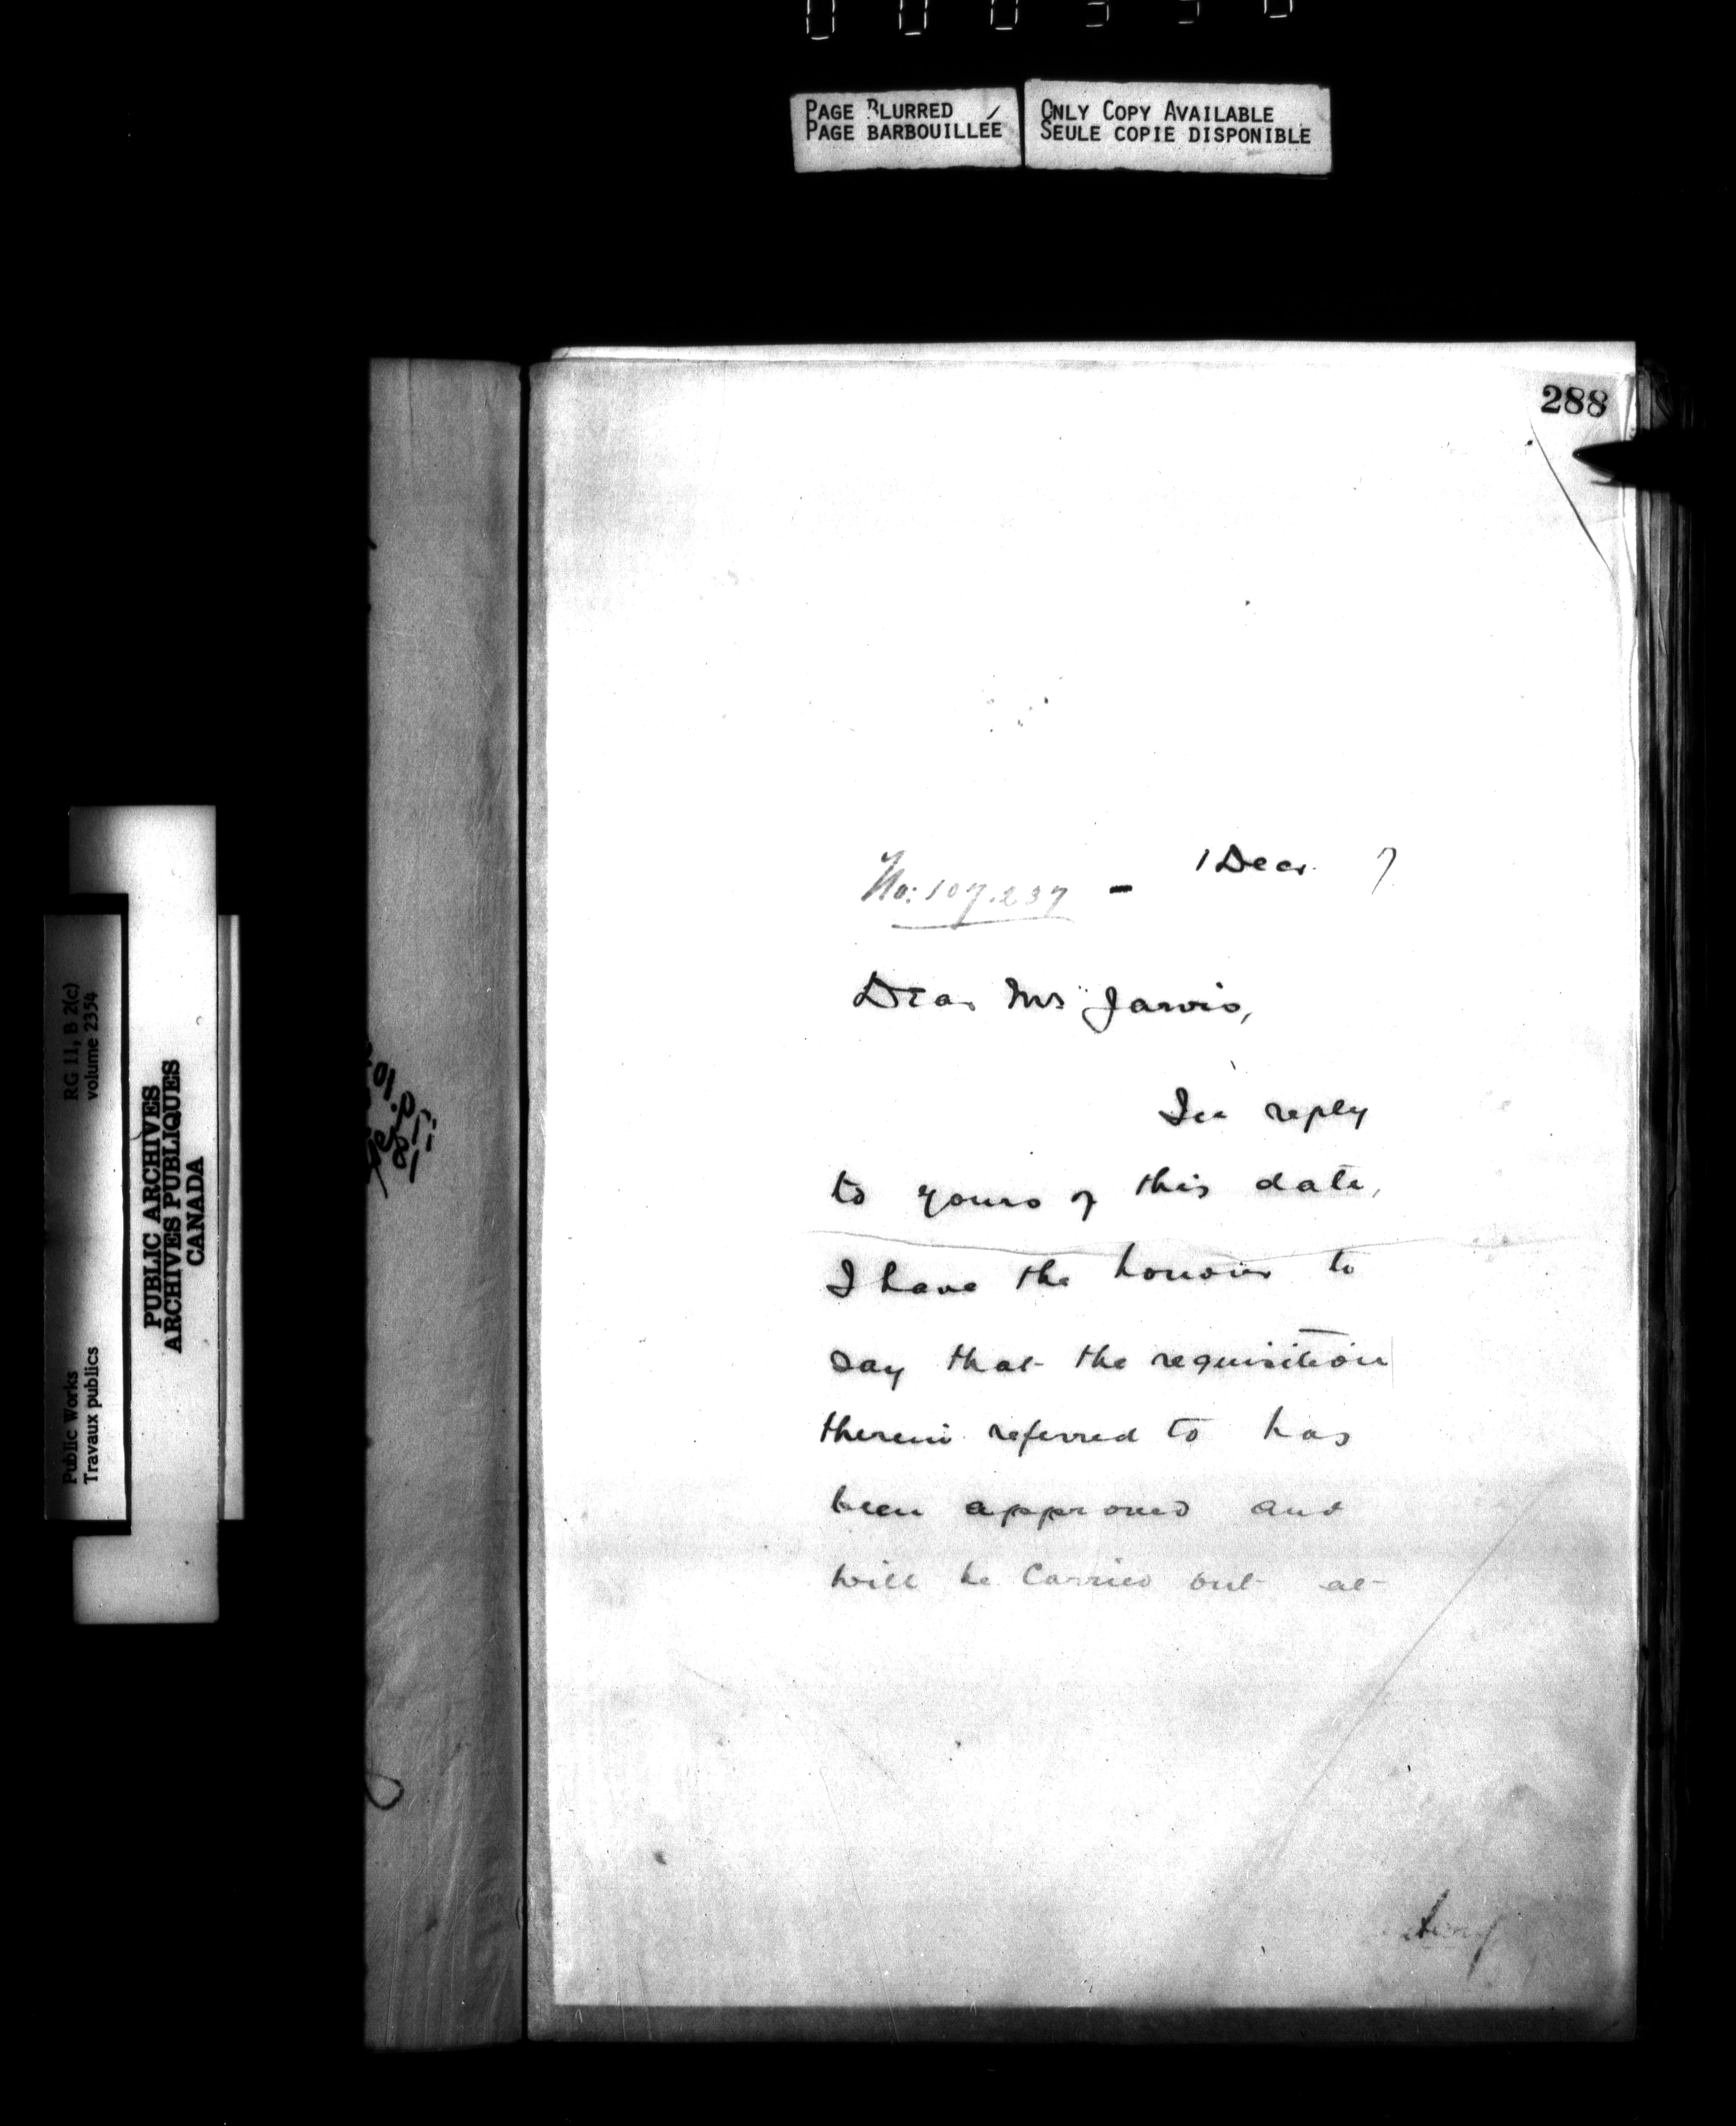 PAGE BLURRED
PAGE BARBOUILLÉE
ONLY COPY AVAILABLE
SEULE COPIE DISPONIBLE
288
No: 107.237 - 1 Decr. 7
Dear Mr Jarvis,
In reply
to yours of this date,
I have the honour to
say that the requisition
therein referred to has
been approved and
will be carried out at
Public Works
Travaux publics
RG 11, B 2(c)
volume 2354
PUBLIC ARCHIVES
ARCHIVES PUBLIQUES
CANADA